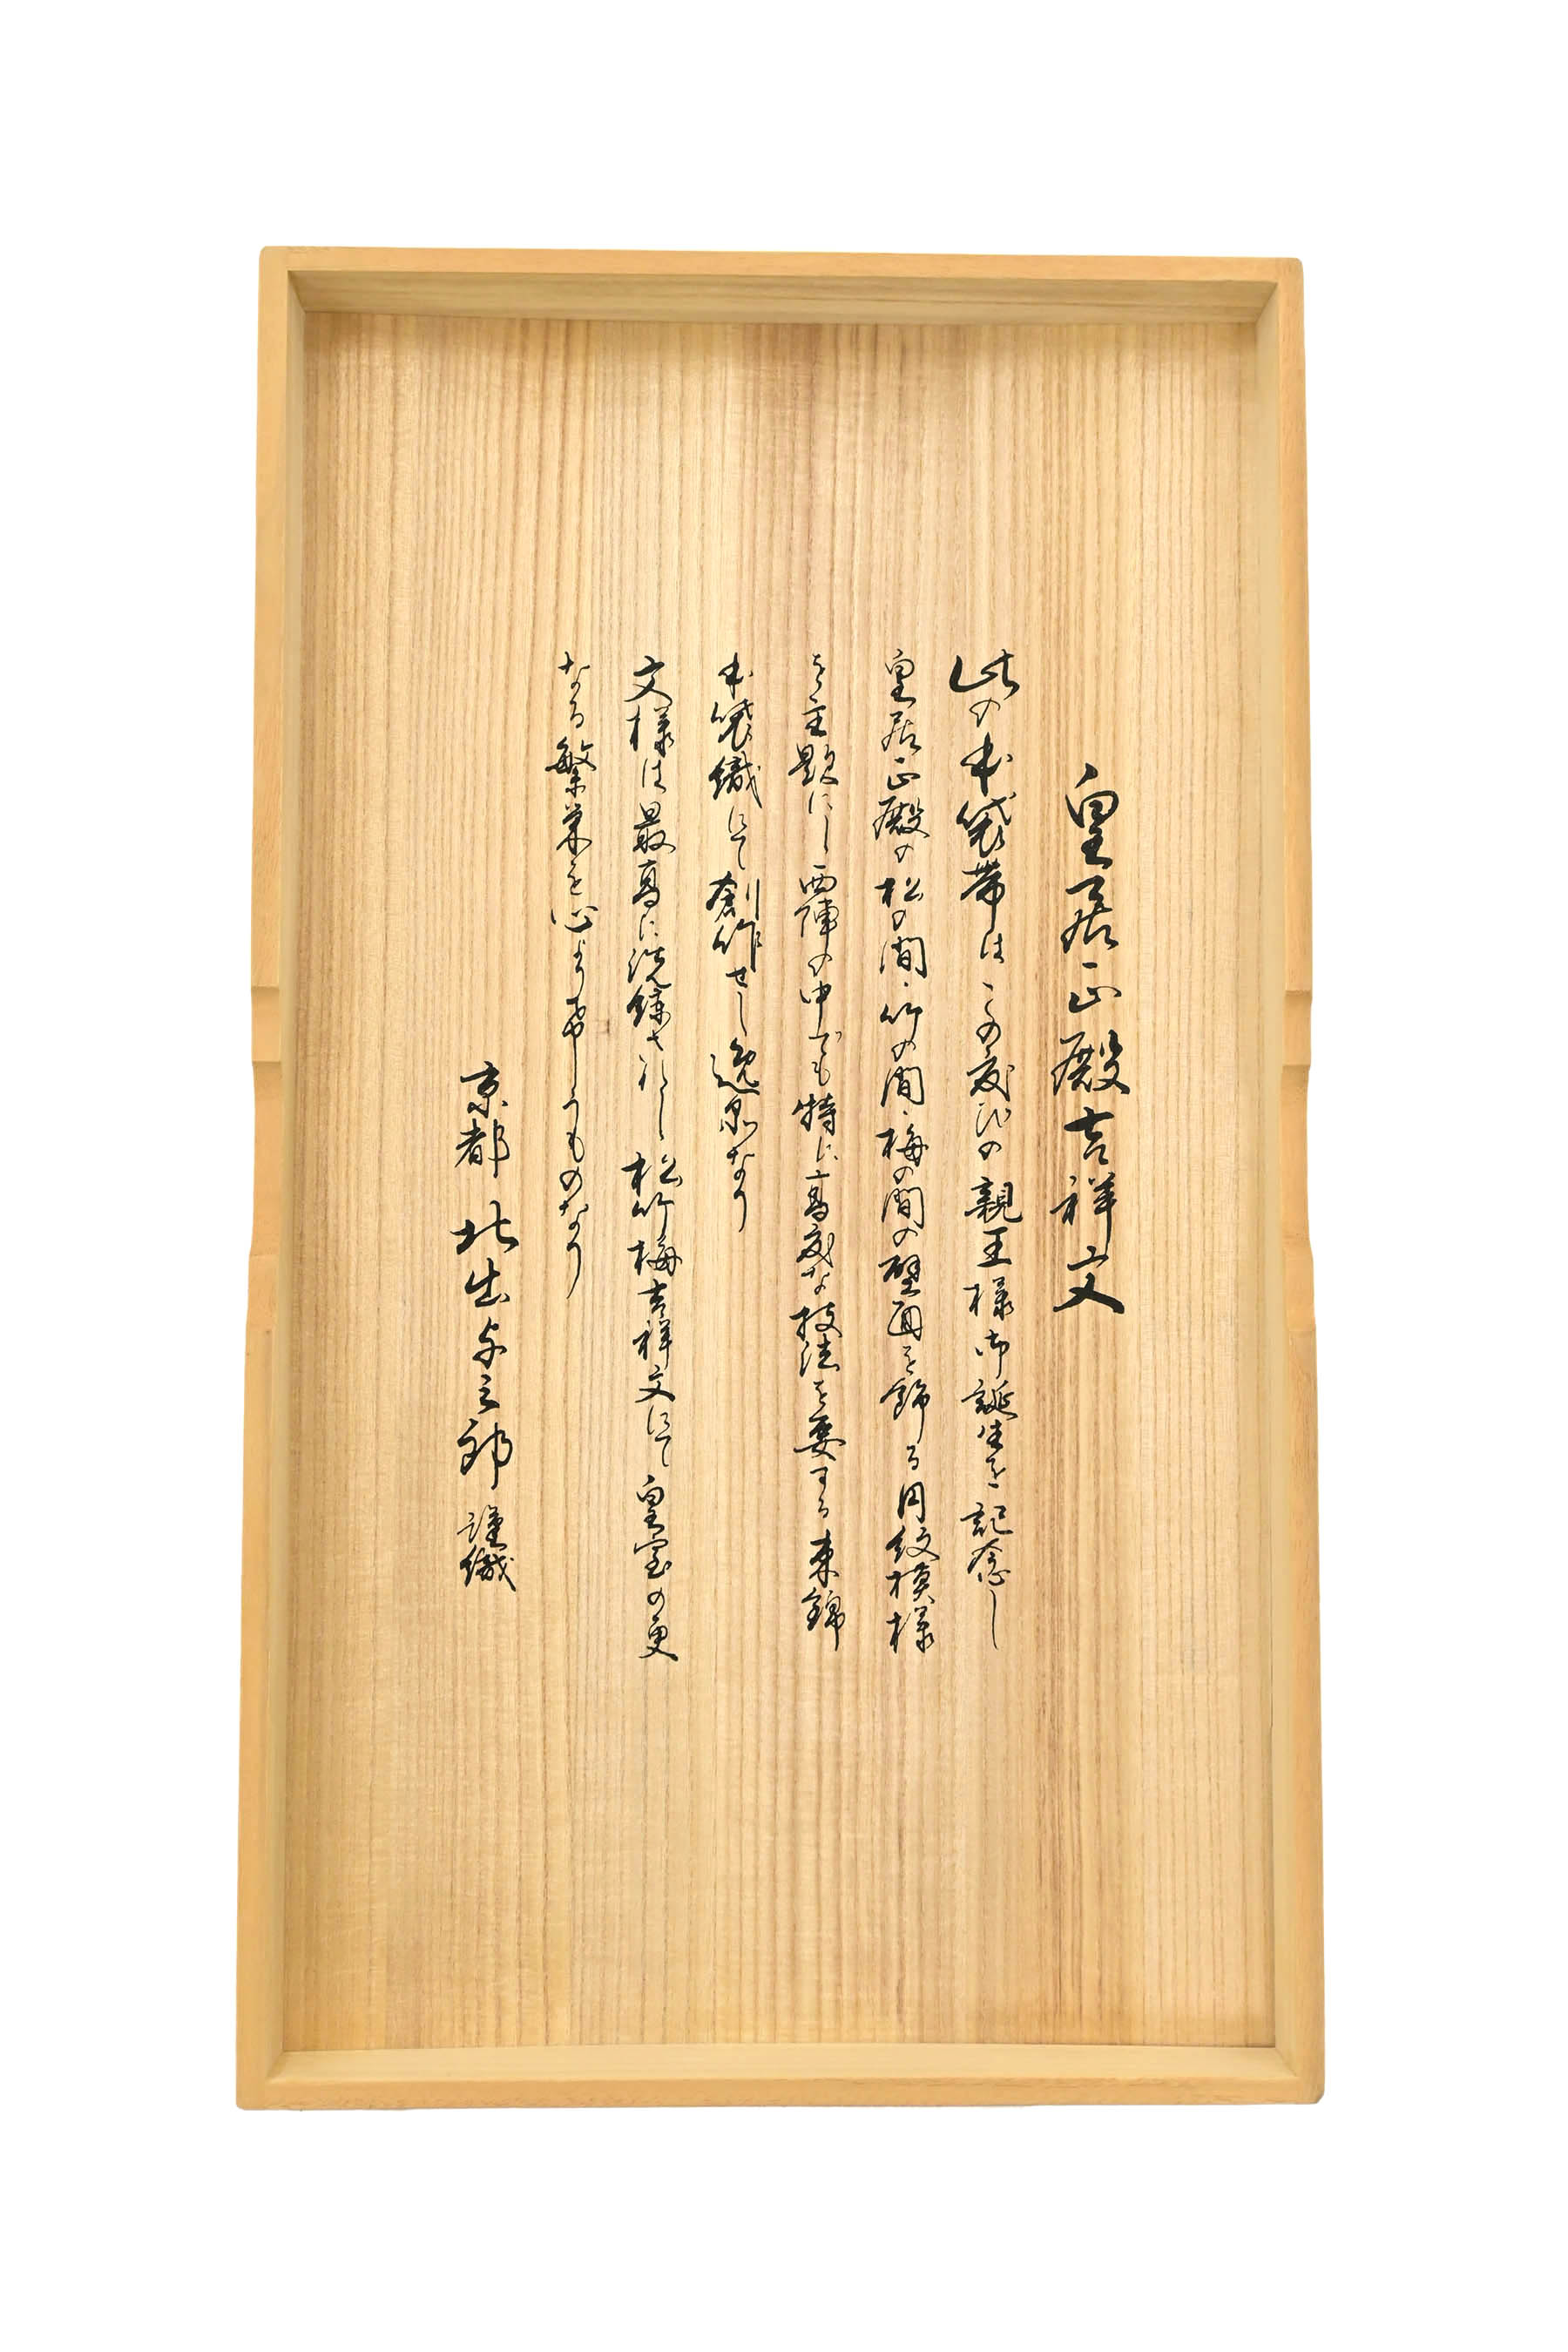 皇居正殿吉祥文
此の本袋帯はこの度びの親王様御誕生を記念し
皇居正殿の松の間・竹の間・梅の間の壁面を飾る円紋模様
を主題にし西陣の中でも特に高度な技法を要する東錦
本袋織にて創作せし逸品なり
文様は最高に洗練されし松竹梅吉祥文にて皇室の更
なる繁栄を心より希しうものなり
京都 北出与三郎 謹織